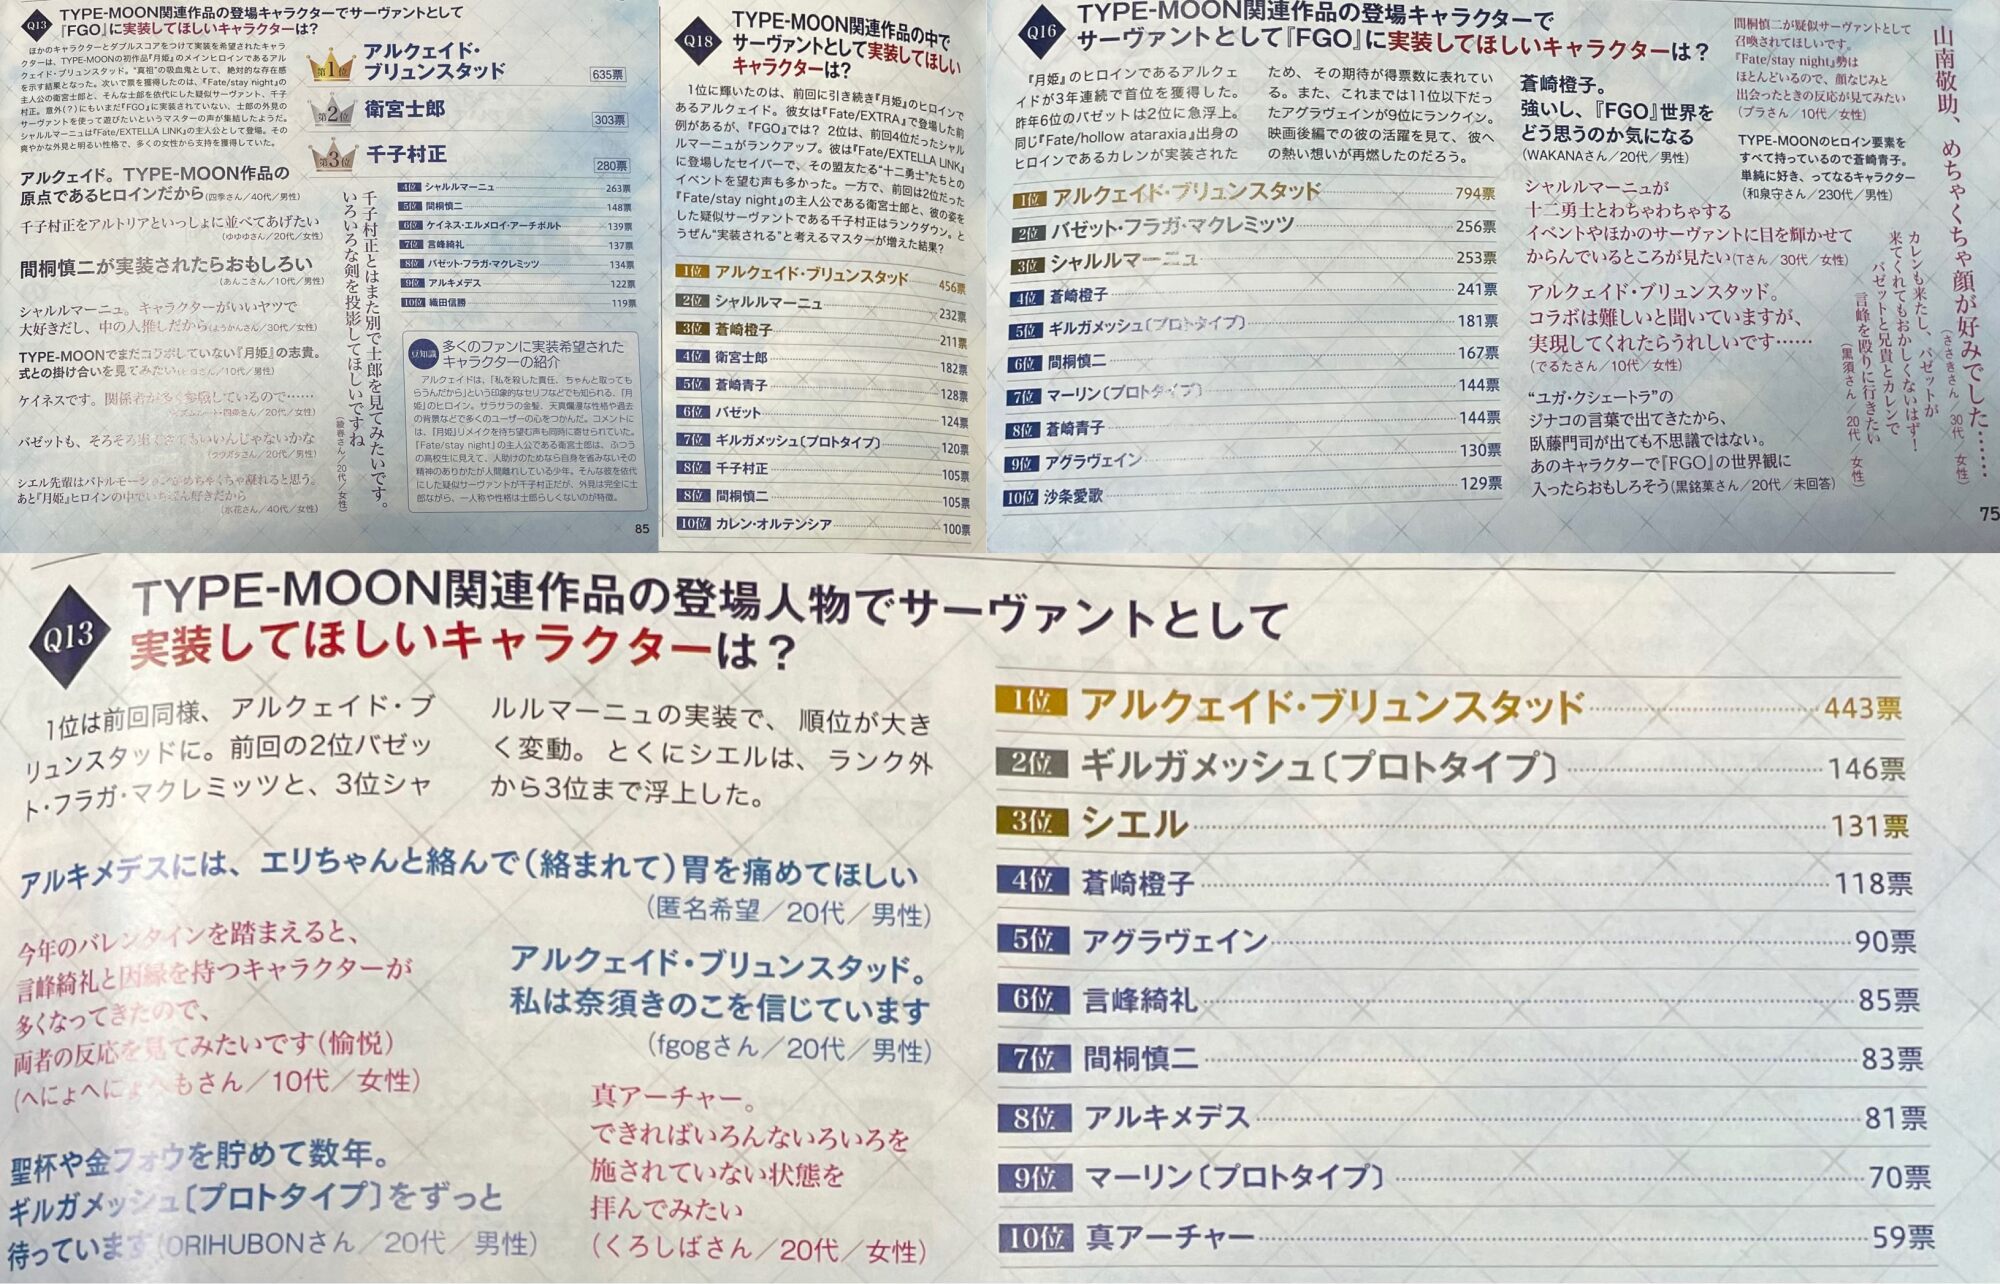 Q13
TYPE-MOON関連作品の登場キャラクターでサーヴァントとして
『FGO』に実装してほしいキャラクターは？
ほかのキャラクターとダブルスコアをつけて実装を希望されたキャラ
クターは、TYPE-MOONの初作品『月姫』のメインヒロインであるアル
クェイド・ブリュンスタッド。“真祖”の吸血鬼として、絶対的な存在感
を示す結果となった。次いで票を獲得したのは、『Fate/stay night』の
主人公の衛宮士郎と、そんな士郎を依代にした疑似サーヴァント、千子
村正。意外(？)にもいまだ『FGO』に実装されていない、士郎の外見の
サーヴァントを使って遊びたいというマスターの声が集結したようだ。
シャルルマーニュは『Fate/EXTELLA LINK』の主人公として登場。その
爽やかな外見と明るい性格で、多くの女性から支持を獲得していた。
第1位
アルクェイド・
ブリュンスタッド
635票
第2位
衛宮士郎
303票
第3位
千子村正
280票
4位 シャルルマーニュ 263票
5位 間桐慎二 148票
6位 ケイネス・エルメロイ・アーチボルト 139票
7位 言峰綺礼 137票
8位 バゼット・フラガ・マクレミッツ 134票
9位 アルキメデス 122票
10位 織田信勝 119票
アルクェイド。TYPE-MOON作品の
原点であるヒロインだから(四季さん／40代／男性)
千子村正をアルトリアといっしょに並べてあげたい
(ゆゆゆさん／20代／女性)
間桐慎二が実装されたらおもしろい
(あんこさん／10代／男性)
シャルルマーニュ。キャラクターがいいヤツで
大好きだし、中の人推しだから(ようかんさん／30代／女性)
TYPE-MOONでまだコラボしていない『月姫』の志貴。
式との掛け合いを見てみたい
ケイネスです。関係者が多く参戦しているので……
バゼットも、そろそろ
シエル先輩はバトルモーションがめちゃくちゃ凝れると思う。
あと『月姫』ヒロインの中でいちばん好きだから
(水花さん／40代／女性)
千子村正とはまた別で士郎を見てみたいです。
いろいろな剣を投影してほしいですね
(綾春さん／20代／女性)
豆知識
多くのファンに実装希望された
キャラクターの紹介
アルクェイドは、「私を殺した責任、ちゃんと取っても
らうんだから」という印象的なセリフなどでも知られる、『月
姫』のヒロイン。サラサラの金髪、天真爛漫な性格や過去
の背景などで多くのユーザーの心をつかんだ。コメントに
は、『月姫』リメイクを待ち望む声も同時に寄せられていた。
『Fate/stay night』の主人公である衛宮士郎は、ふつう
の高校生に見えて、人助けのためなら自身を省みないその
精神のありかたが人間離れしている少年。そんな彼を依代
にした疑似サーヴァントが千子村正だが、外見は完全に士
郎ながら、一人称や性格は士郎らしくないのが特徴。
85
Q18
TYPE-MOON関連作品の中で
サーヴァントとして実装してほしい
キャラクターは？
1位に輝いたのは、前回に引き続き『月姫』のヒロインで
あるアルクェイド。彼女は『Fate/EXTRA』で登場した前
例があるが、『FGO』では？ 2位は、前回4位だったシャル
ルマーニュがランクアップ。彼は『Fate/EXTELLA LINK』
に登場したセイバーで、その盟友たる“十二勇士”たちとの
イベントを望む声も多かった。一方で、前回は2位だった
『Fate/stay night』の主人公である衛宮士郎と、彼の姿を
した疑似サーヴァントである千子村正はランクダウン。と
うぜん“実装される”と考えるマスターが増えた結果？
1位 アルクェイド・ブリュンスタッド 456票
2位 シャルルマーニュ 232票
3位 蒼崎橙子 211票
4位 衛宮士郎 182票
5位 蒼崎青子 128票
6位 バゼット 124票
7位 ギルガメッシュ〔プロトタイプ〕 120票
8位 千子村正 105票
8位 間桐慎二 105票
10位 カレン・オルテンシア 100票
Q16
TYPE-MOON関連作品の登場キャラクターで
サーヴァントとして『FGO』に実装してほしいキャラクターは？
『月姫』のヒロインであるアルクェ
イドが3年連続で首位を獲得した。
昨年6位のバゼットは2位に急浮上。
同じ『Fate/hollow ataraxia』出身の
ヒロインであるカレンが実装された
ため、その期待が得票数に表れてい
る。また、これまでは11位以下だっ
たアグラヴェインが9位にランクイン。
映画後編での彼の活躍を見て、彼へ
の熱い想いが再燃したのだろう。
1位 アルクェイド・ブリュンスタッド 794票
2位 バゼット・フラガ・マクレミッツ 256票
3位 シャルルマーニュ 253票
4位 蒼崎橙子 241票
5位 ギルガメッシュ〔プロトタイプ〕 181票
6位 間桐慎二 167票
7位 マーリン〔プロトタイプ〕 144票
8位 蒼崎青子 144票
9位 アグラヴェイン 130票
10位 沙条愛歌 129票
蒼崎橙子。
強いし、『FGO』世界を
どう思うのか気になる
(WAKANAさん／20代／男性)
シャルルマーニュが
十二勇士とわちゃわちゃする
イベントやほかのサーヴァントに目を輝かせて
からんでいるところが見たい(Tさん／30代／女性)
アルクェイド・ブリュンスタッド。
コラボは難しいと聞いていますが、
実現してくれたらうれしいです……
(でるたさん／10代／女性)
“ユガ・クシェートラ”の
ジナコの言葉で出てきたから、
臥藤門司が出ても不思議ではない。
あのキャラクターで『FGO』の世界観に
入ったらおもしろそう(黒銘菓さん／20代／未回答)
間桐慎二が疑似サーヴァントとして
召喚されてほしいです。
『Fate/stay night』勢は
ほとんどいるので、顔なじみと
出会ったときの反応が見てみたい
(プラさん／10代／女性)
TYPE-MOONのヒロイン要素を
すべて持っているので蒼崎青子。
単純に好き、ってなるキャラクター
(和泉守さん／230代／男性)
山南敬助、めちゃくちゃ顔が好みでした……
(ささきさん／30代／女性)
カレンも来たし、バゼットが
来てくれてもおかしくないはず！
バゼットと兄貴とカレンで
言峰を殴りに行きたい
(黒須さん／20代／女性)
75
Q13
TYPE-MOON関連作品の登場人物でサーヴァントとして
実装してほしいキャラクターは？
1位は前回同様、アルクェイド・ブ
リュンスタッドに。前回の2位バゼッ
ト・フラガ・マクレミッツと、3位シャ
ルルマーニュの実装で、順位が大き
く変動。とくにシエルは、ランク外
から3位まで浮上した。
アルキメデスには、エリちゃんと絡んで(絡まれて)胃を痛めてほしい
(匿名希望／20代／男性)
今年のバレンタインを踏まえると、
言峰綺礼と因縁を持つキャラクターが
多くなってきたので、
両者の反応を見てみたいです(愉悦)
(へにょへにょへもさん／10代／女性)
アルクェイド・ブリュンスタッド。
私は奈須きのこを信じています
(fgogさん／20代／男性)
聖杯や金フォウを貯めて数年。
ギルガメッシュ〔プロトタイプ〕をずっと
待っています(ORIHUBONさん／20代／男性)
真アーチャー。
できればいろんないろいろを
施されていない状態を
拝んでみたい
(くろしばさん／20代／女性)
1位 アルクェイド・ブリュンスタッド 443票
2位 ギルガメッシュ〔プロトタイプ〕 146票
3位 シエル 131票
4位 蒼崎橙子 118票
5位 アグラヴェイン 90票
6位 言峰綺礼 85票
7位 間桐慎二 83票
8位 アルキメデス 81票
9位 マーリン〔プロトタイプ〕 70票
10位 真アーチャー 59票